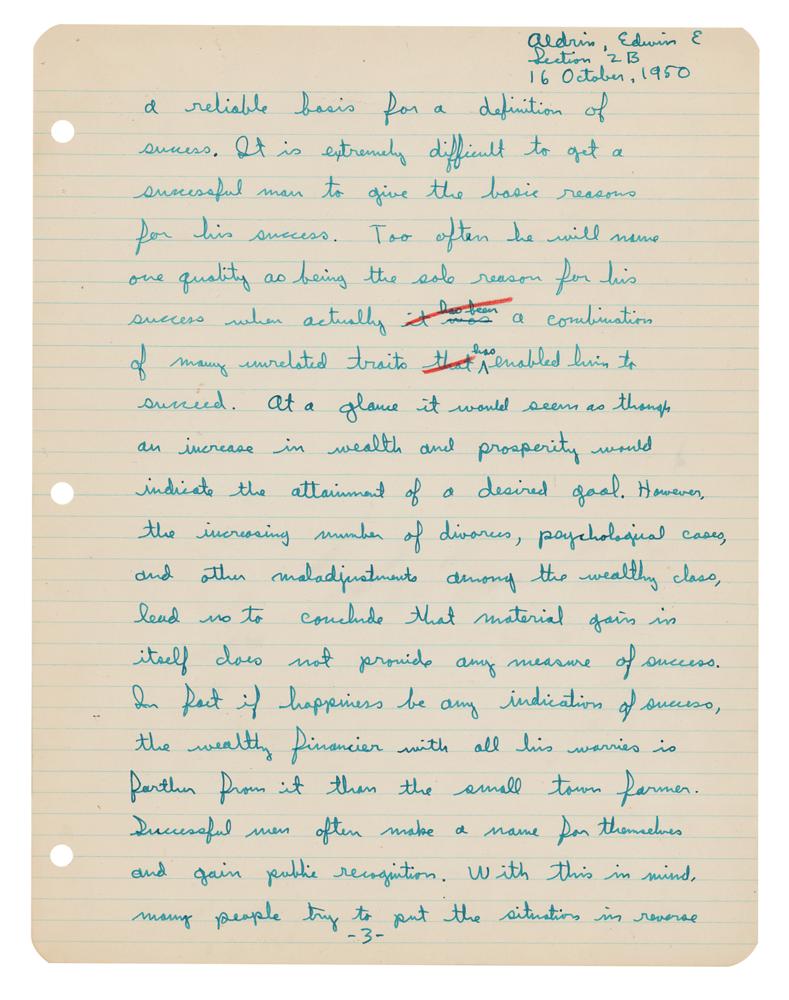 Aldrin, Edwin E
Section 2B
16 October, 1950
a reliable basis for a definition of
success. It is extremely difficult to get a
successful man to give the basic reasons
for his success. Too often he will name
one quality as being the sole reason for his
has been
success when actually it was a combination
has
of many unrelated traits that ^ enabled him to
succeed. At a glance it would seem as though
an increase in wealth and prosperity would
indicate the attainment of a desired goal. However,
the increasing number of divorces, psychological cases,
and other maladjustments among the wealthy class,
lead us to conclude that material gain in
itself does not provide any measure of success.
In fact if happiness be any indication of success,
the wealthy financier with all his worries is
farther from it than the small town farmer.
Successful men often make a name for themselves
and gain public recognition. With this in mind,
many people try to put the situation in reverse
-3-